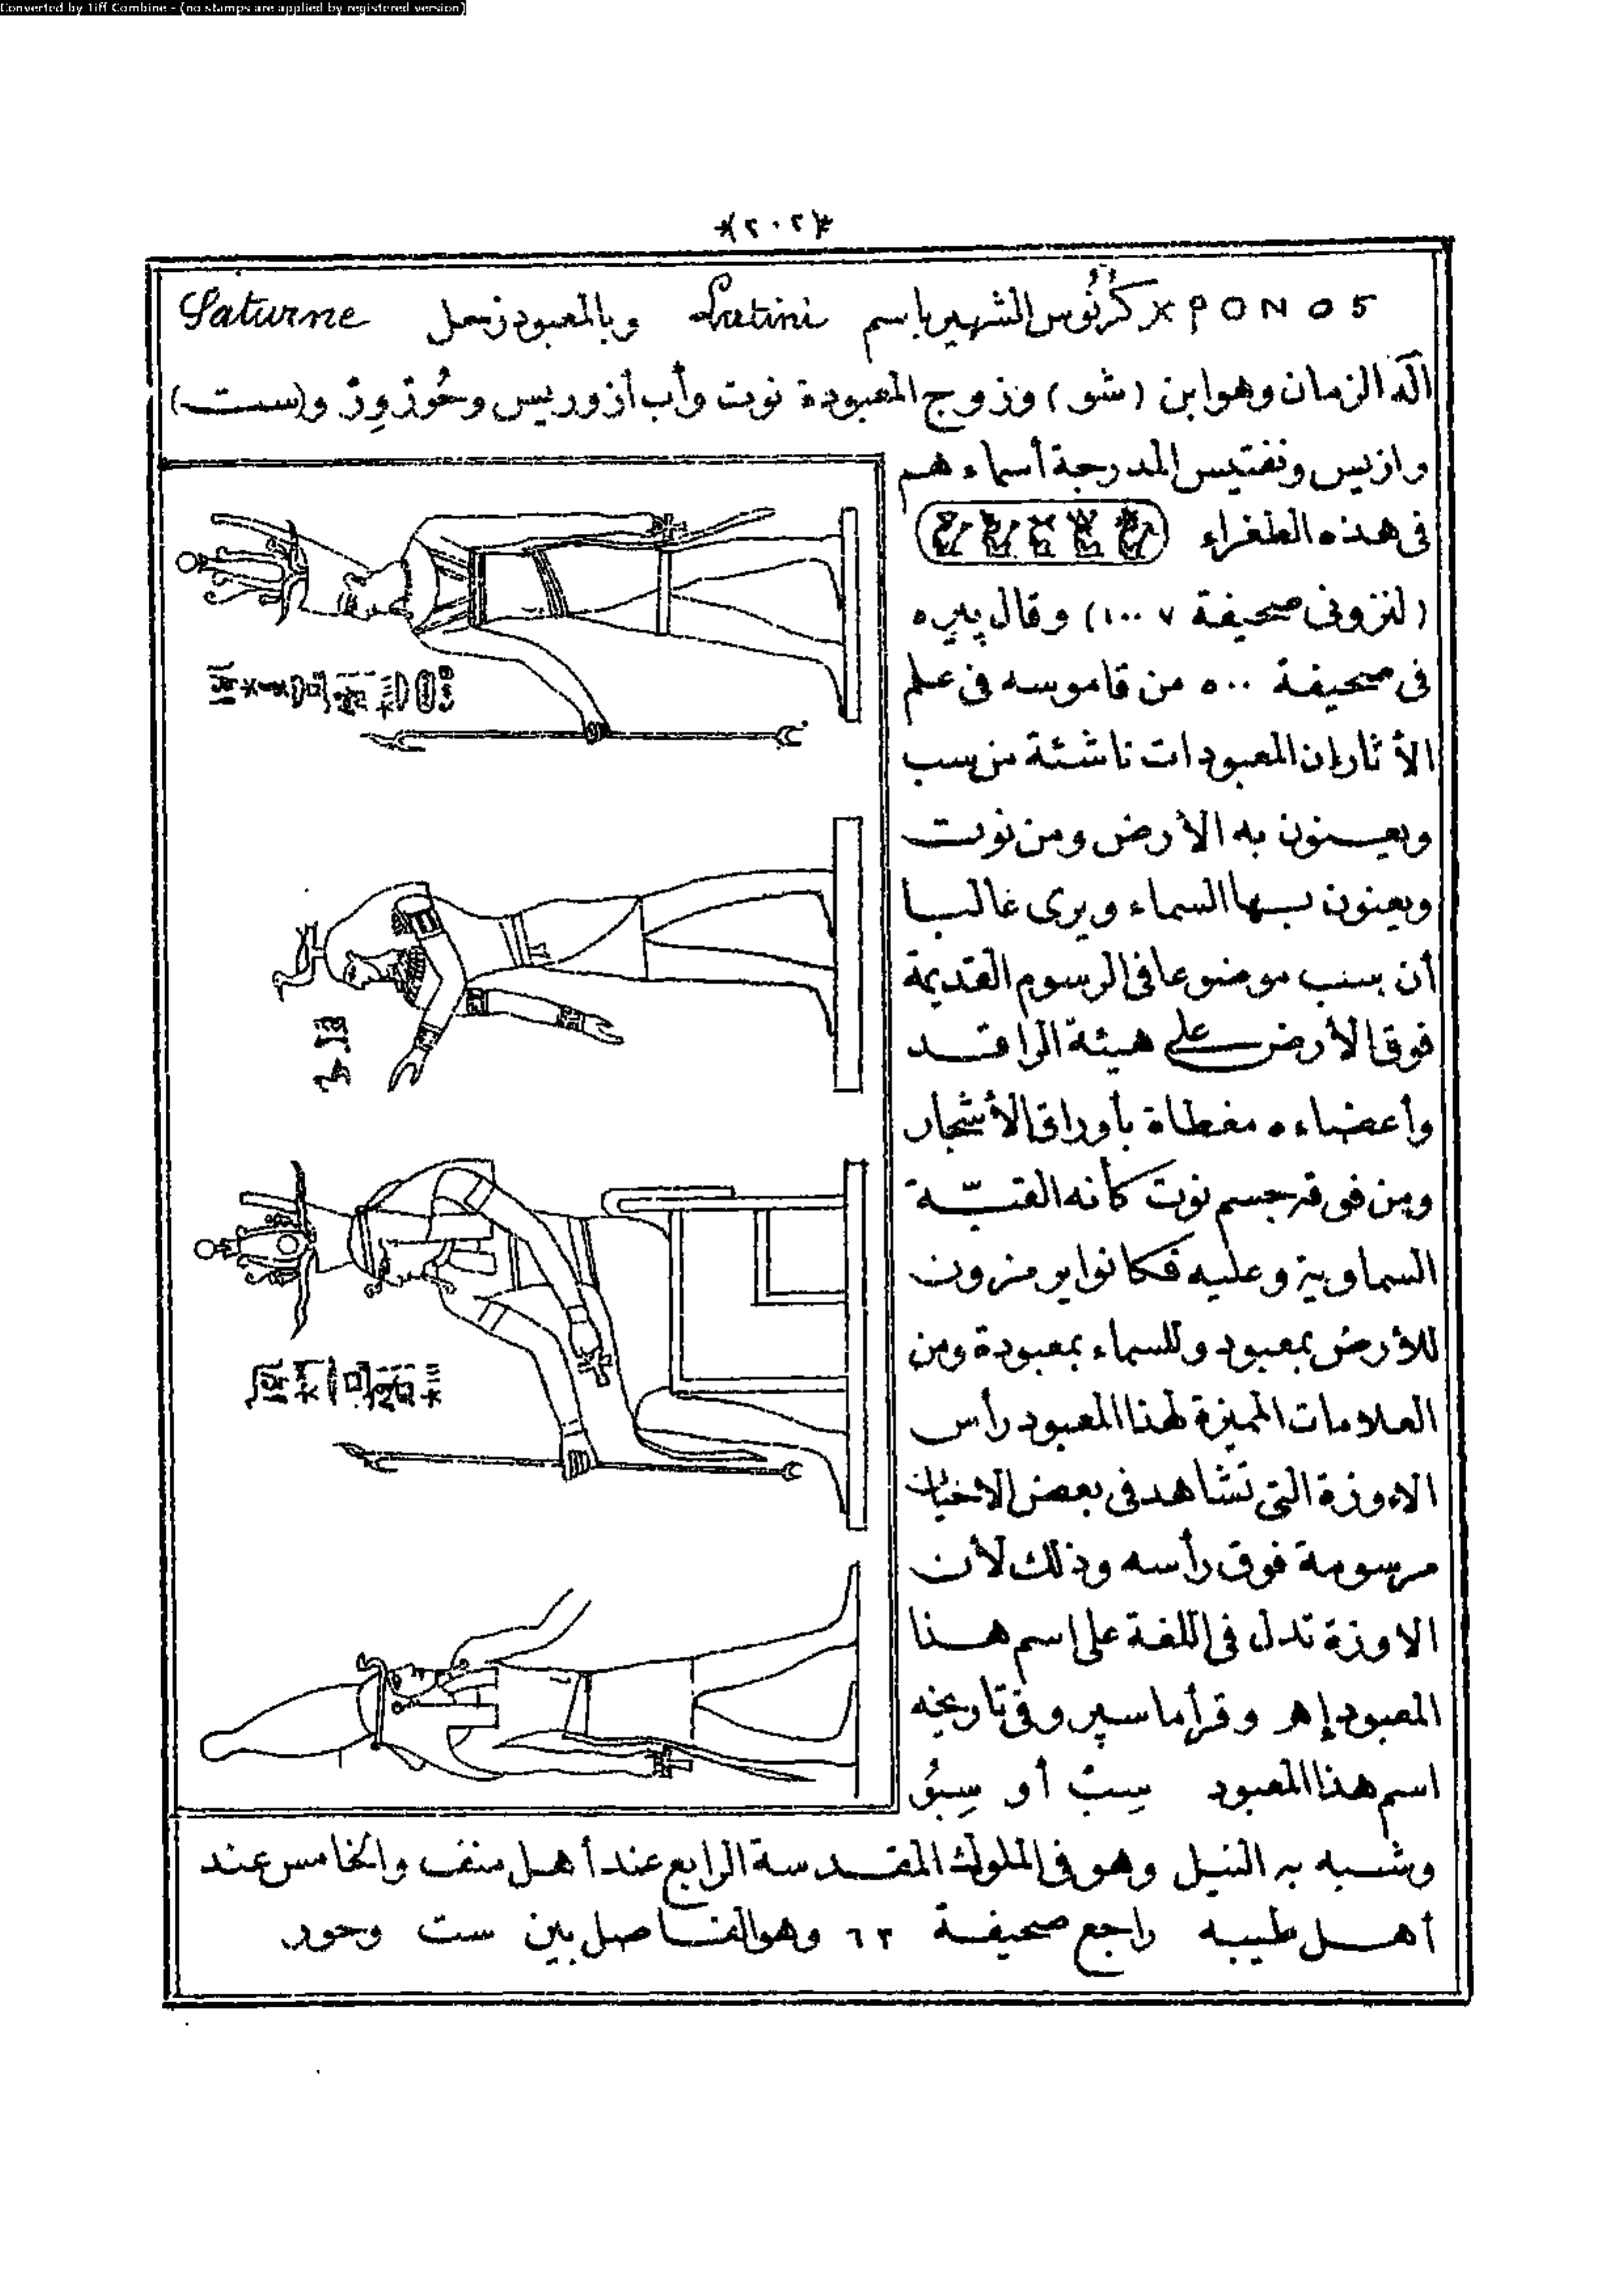 Converted by Tiff Combine - (no stamps are applied by registered version)
*(٢٠٢)*
ΧΡΟΝΟΣ كرنوس الشهير باسم Latini وبالمعبود زحل Saturne
آله الزمان وهو ابن (شو) وزوج المعبودة نوت وأب أزوريس وحُوزْوِرْ و(ست)
وازيس ونفتيس المدرجة أسماءهم
فى هذه الطغراء
(لنزونى صحيفة ١٠٠٧) وقال پيره
فى صحيفة ٥٠٠ من قاموسه فى علم
الأثار إن المعبودات ناشئة من سب
ويعنون به الأرض ومن نوت
ويعنون بها السماء ويرى غالبا
أن سب موضوعا فى الرسوم القديمة
فوق الأرض على هيئة الراقد
وأعضاءه مغطاة بأوراق الأشجار
ومن فوقه جسم نوت كأنه القبّة
السماوية وعليه فكانوا يرمزون
للأرض بمعبود وللسماء بمعبودة ومن
العلامات المميزة لهذا المعبود رأس
الاوزة التى تشاهد فى بعض الاحيان
مرسومة فوق رأسه وذلك لأن
الاوزة تدل فى اللغة على اسم هذا
المعبود إهـ وقرأ ماسپرو فى تاريخه
اسم هذا المعبود سِبْ أو سِبُو
وشبه به النيل وهو فى الملوك المقدسة الرابع عند أهل منف والخامس عند
أهل طيبه راجع صحيفة ٦٣ وهو الفاصل بين ست وحور